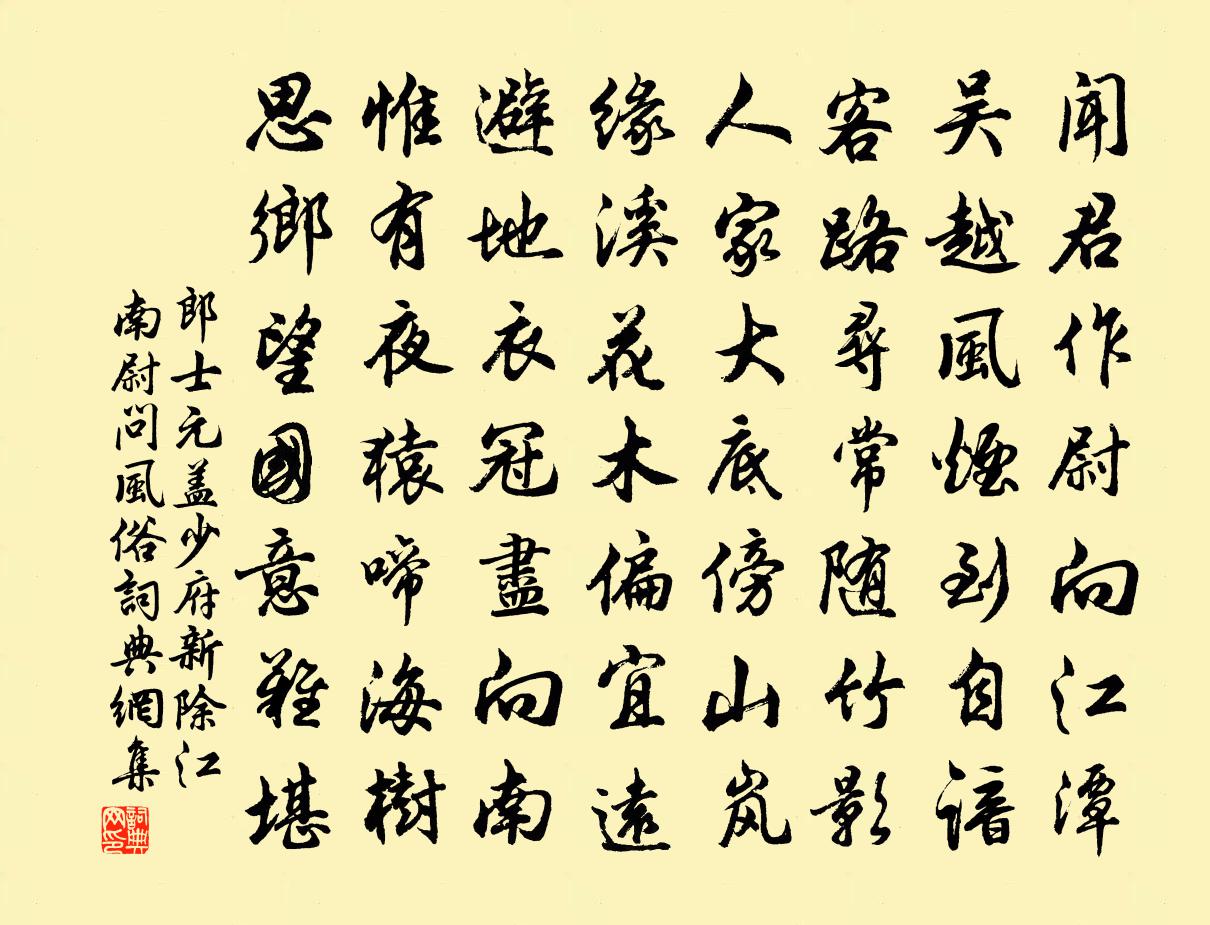 聞君作尉向江潭
吴越風煙到自諳
客路尋常随竹影
人家大底傍山岚
缘溪花木偏宜遠
避地衣冠盡向南
惟有夜猿啼海樹
思鄉望國意難堪
郎士元盖少府新除江
南尉問風俗詞典網集
詞典
网印